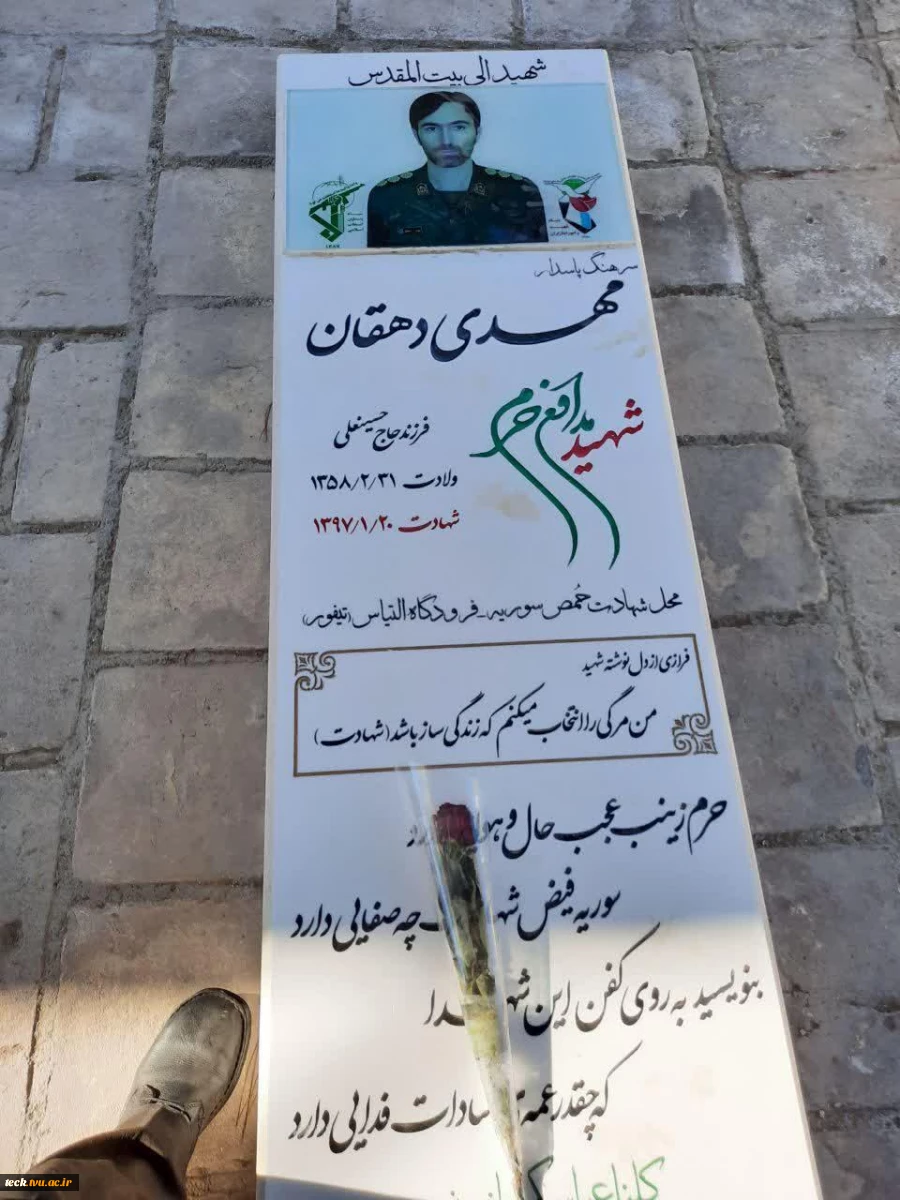 شهید الی بیت المقدس
سرهنگ پاسدار
مهدی دهقان
شهید مدافع حرم
فرزند حاج حسینعلی
ولادت ۱۳۵۸/۲/۳۱
شهادت ۱۳۹۷/۱/۲۰
محل شهادت حُمص سوریه - فرودگاه التیاس (تیفور)
فرازی از دل نوشته شهید
من مرگی را انتخاب میکنم که زندگی ساز باشد (شهادت)
حرم زینب عجب حال و
سوریه فیض چه صفایی دارد
بنویسید به روی کفن این
که چقدر عمه سادات فدایی دارد
teck.tvu.ac.ir